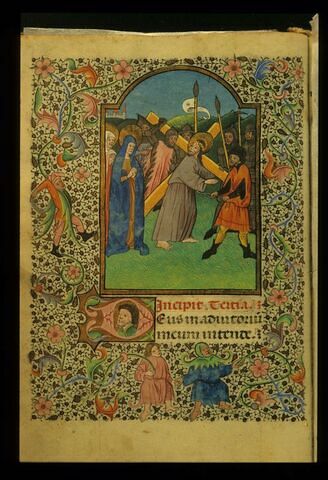 Incipit Tertia
Eus in adiutoriū
meum intende